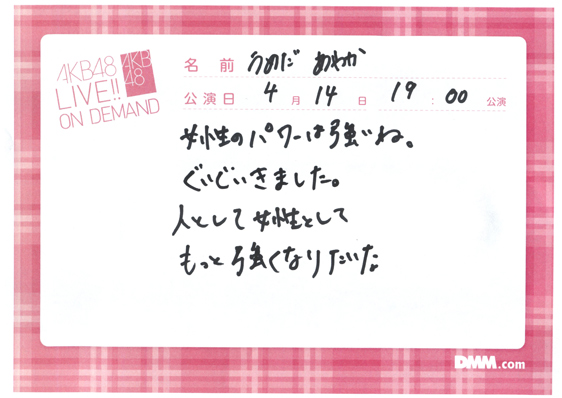 AKB48
LIVE!!
ON DEMAND
AKB
48
名前 うめだ あやか
公演日 4月14日 19:00 公演
女性のパワーは強いね。
ぐいぐいきました。
人として女性として
もっと強くなりたいな
DMM.com